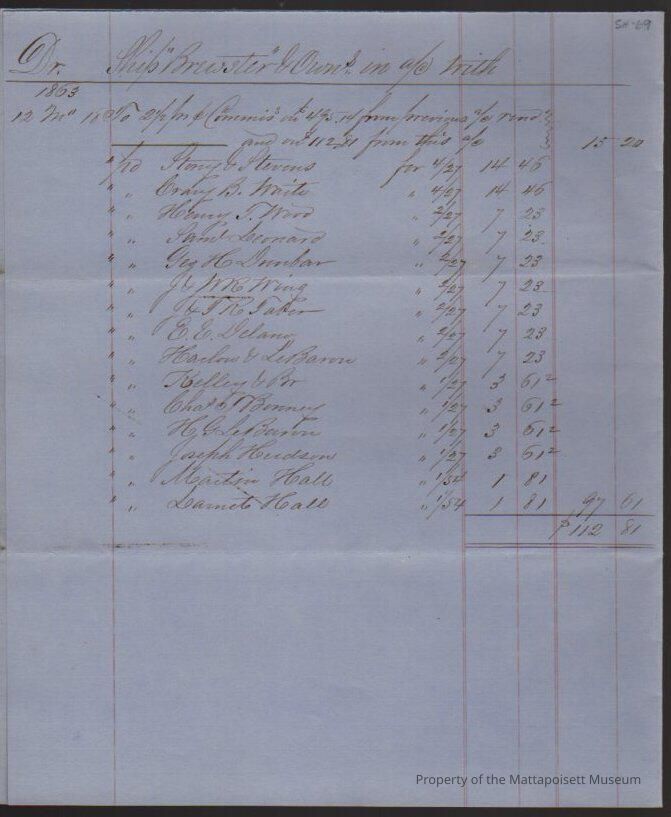 SH-69
Dr. Ship "Brewster" & Own.s in a/c with
1863
12 Mo 18 To 2½ pr ct Commis. on 495.14 from previous a/c rend.
and on 112.81 from this a/c 15 20
" pd Stony & Stevens for 4/27 14 46
" " Craig B. Waite " 4/27 14 46
" " Henry T. Wood " 2/27 7 23
" " Saml Leonard " 2/27 7 23
" " Geo H Dunbar " 2/27 7 23
" " J & W R Wing " 2/27 7 23
" " J & T R Taber " 2/27 7 23
" " E. E. Delano " 2/27 7 23
" " Harlow & LeBaron " 2/27 7 23
" " Kelley & Br " 1/27 3 61 2
" " Chas F Bonney " 1/27 3 61 2
" " H G LeBaron " 1/27 3 61 2
" " Joseph Hudson " 1/27 3 61 2
" " Martin Hall " 1/54 1 81
" " Hall " 1/54 1 81 97 61
$112 81
Property of the Mattapoisett Museum